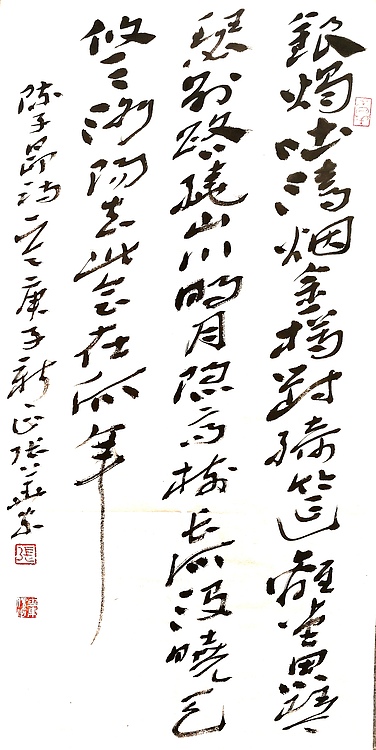 銀燭吐清烟金樽對綺筵離堂思琴
瑟別路繞山川明月隱高樹長河沒曉天
悠々洛陽去此會在何年
陳子昂詩一首庚子新正張
張